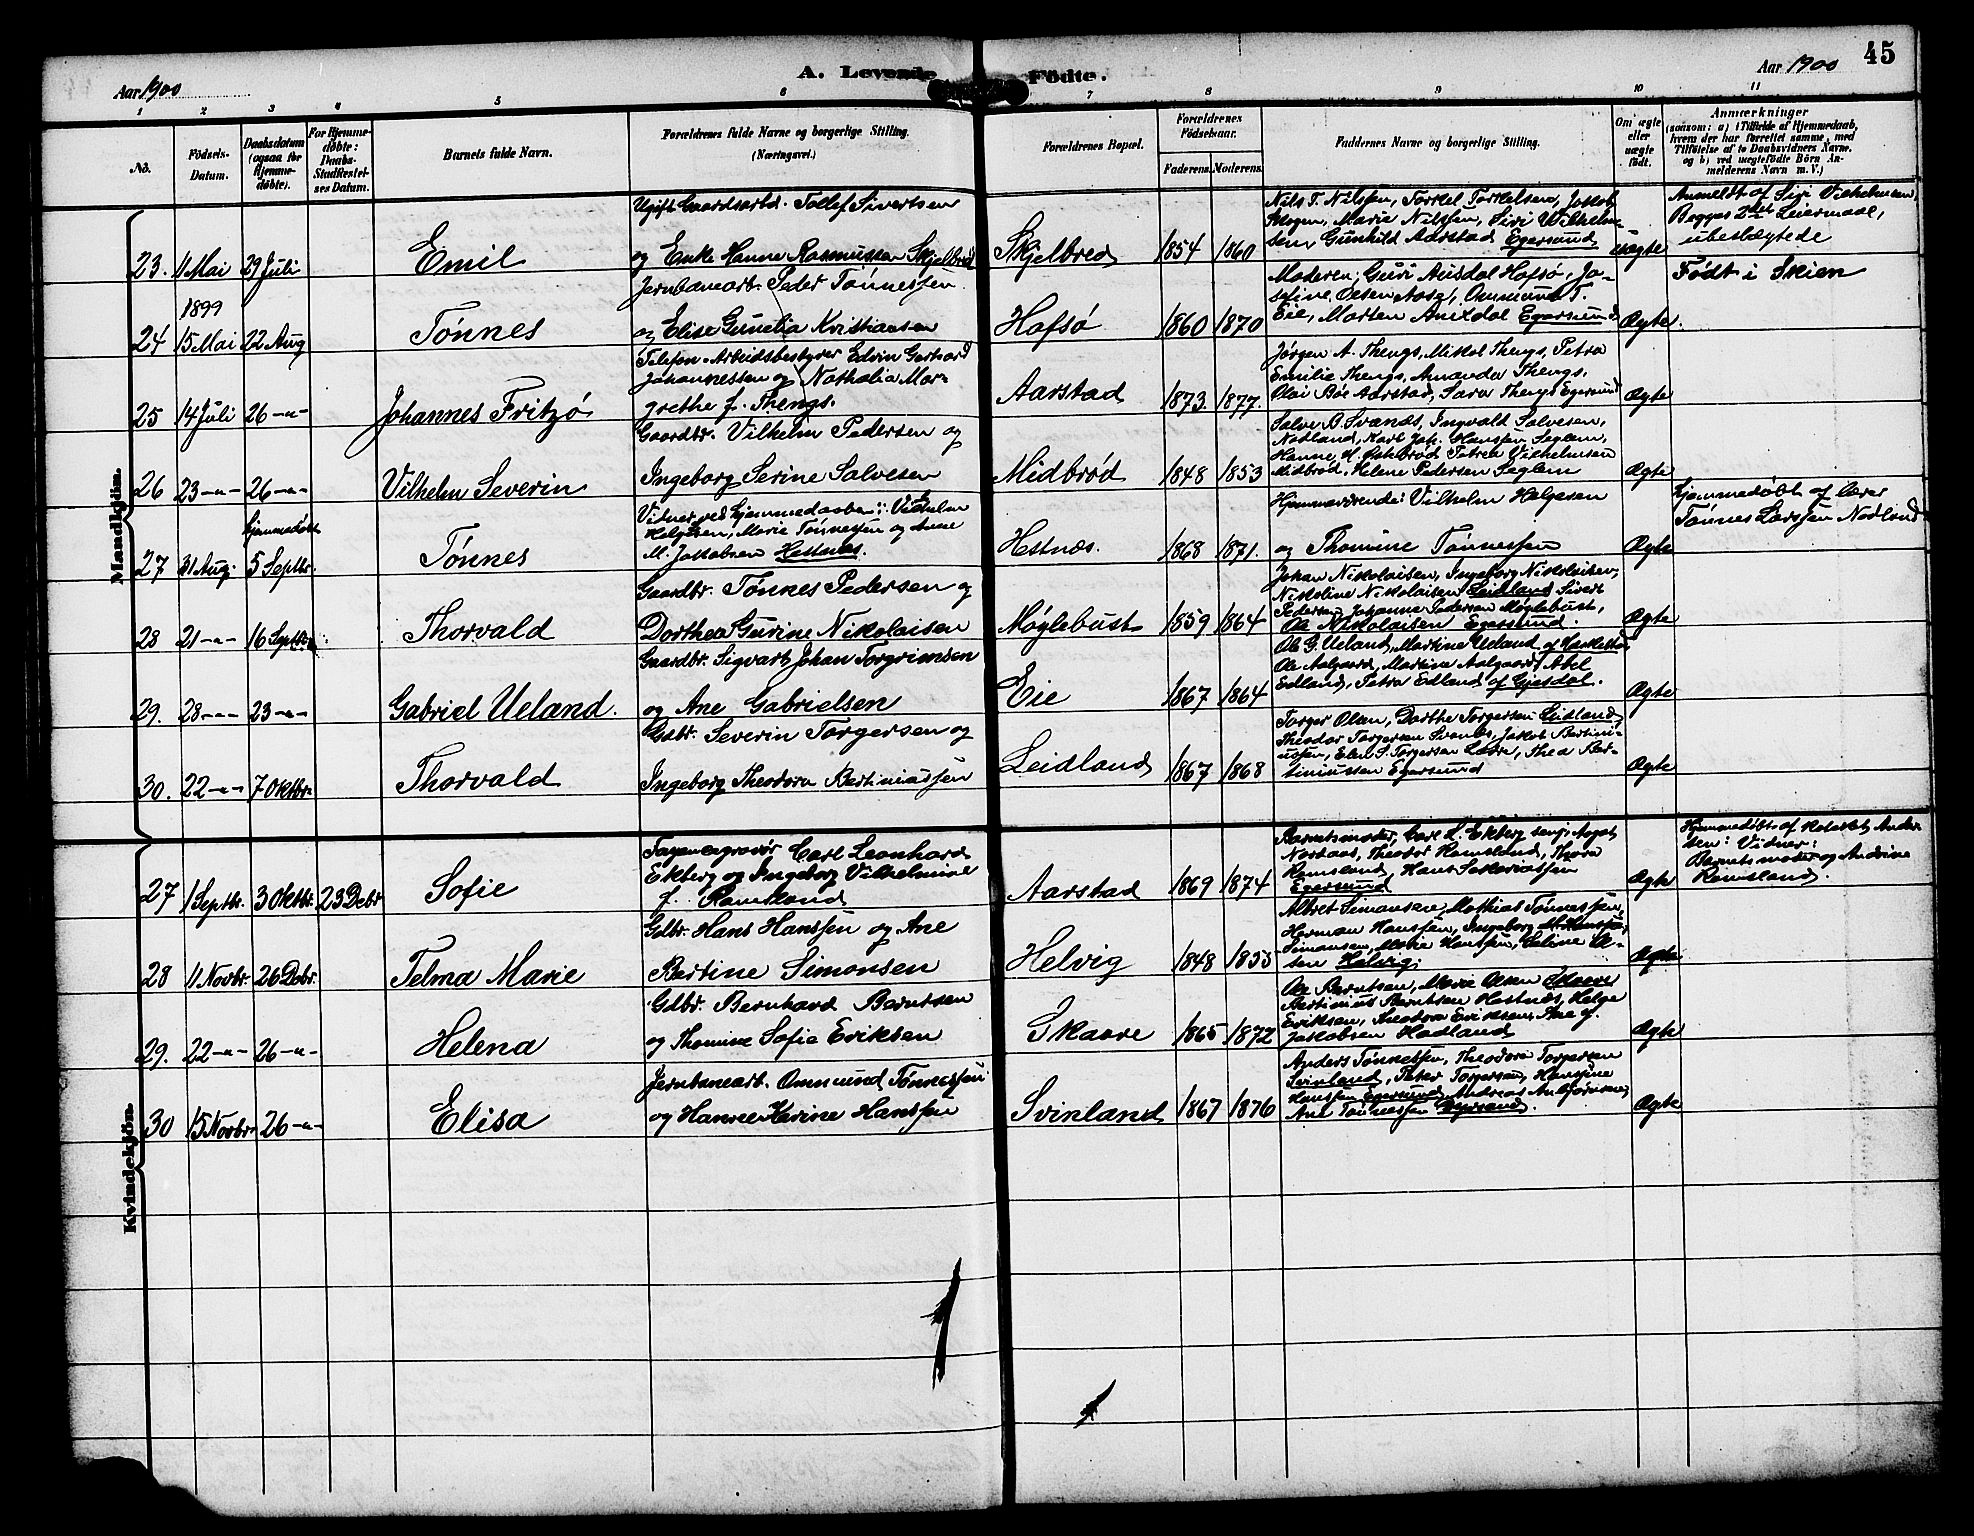 Aar 1900
A. Levende Födte.
Aar 1900
45
1 2 3 4 5 6 7 8 9 10 11
No.
Födsels-Datum.
Daabsdatum (ogsaa for Hjemmedöbte).
For Hjemmedöbte: Daabs-Stadfæstelses Datum.
Barnets fulde Navn.
Forældrenes fulde Navne og borgerlige Stilling.
(Næringsvei.)
Forældrenes Bopæl.
Forældrenes Födselsaar.
Faderens. Moderens.
Faddernes Navne og borgerlige Stilling.
Om ægte eller uægte födt.
Anmærkninger
(saasom: a) i Tilfælde af Hjemmedaab,
hvem der har forrettet samme, med
Tilföielse af to Daabsvidners Navne,
og b) ved uægtefödte Börn Anmelderens Navn m. V.)
Mandkjön.
Ugift Gaardsarbd. Tollef Sivertsen
og Enke Hanne Rasmussen Skjelbred
23. 11 Mai 29 Juli Emil Skjelbred 1854 1860
Nils T. Nilssen, Torkel Torkelsen, Jakob
Skogen, Marie Nilssen, Siri Vilhelm-
sen, Gunhild Aarstad Egersund
uægte
Anmeldt af Siri Vilhelmsen,
Begges 2det Leiermaal,
ubeslægtede
1899
24 15 Mai 22 Aug Tönnes
Jernbanearb. Peder Tönnessen
og Elise Gunelia Kristiansen
Hafsö 1860 1870
Moderen, Guri Aursdal Hafsö, Jo-
sefine Olsen Aase, Ommund T.
Eie, Morten Egersund
Ægte.
Födt i Skien
25 14 Juli 26 -"- Johannes Fritzö
Telefon-Arbeidsbestyrer Edvin Gerhard
Johannessen og Nathalia Mar-
grethe f. Thengs.
Aarstad 1873. 1877.
Jörgen A. Thengs, Mikal Thengs, Petra
Emilie Thengs, Amanda Thengs,
Olai Böe Aarstad, Sara Thengs Egersund
Ægte
26 23 -"- 26 -"- Vilhelm Severin
Gaardbr. Vilhelm Pedersen og
Ingeborg Serine Salvesen
Midbröd 1848 1853
Salve B. Svanes, Ingvald Salvesen,
Nodland, Karl Joh. Hanssen Seglem,
Hanne M. Östebröd Petrea Vilhelmsen
Midbröd, Helene Pedersen Seglem
Ægte
27 31 Aug. Hjemmedöbt 5 Septbr. Tönnes
Vidner ved Hjemmedaaben: Vilhelm
Helgesen, Marie Tönnessen og Ane
M. Jakobsen Hestnes.
Hestnæs. 1868 1871.
Hjemmeværende: Vilhelm Helgesen
og Thomine Tönnessen
Ægte
Hjemmedöbt af lærer
Tönnes Larssen Nodland
28 21 -"- 16 Septbr. Thorvald
Gaardbr. Tönnes Pedersen og
Dorthea Gurine Nikolaisen
Möglebust 1859 1864
Johan Nikolaisen, Ingeborg Nikolaisen,
Nikoline Nikolaisen Leidland Sivert
Pedersen, Johanne Pedersen Möglebust,
Ole Nikolaisen Egersund.
Ægte
29. 28 -"- 23 -"- Gabriel Ueland.
Gaardbr. Sigvart Johan Torgrimsen
og Ane Gabrielsen
Eie 1867 1864
Ole G. Ueland, Martine Ueland af
Ole Aalgaard, Martine Aalgaard, Abel
Edland, Petra Edland af Gjesdal.
Ægte
30. 22 -"- 7 Oktbr. Thorvald
Gdbr. Severin Torgersen og
Ingeborg Theodora Bertiniussen
Leidland 1867 1868
Torger Olsen, Dorthe Torgersen Leidland,
Theodor Torgersen Svanes, Jakob Bertini-
ussen, Elen S. Torgersen Thea Ber-
tiniussen Egersund
Ægte
Kvindekjön.
27 1 Septbr. 3 Oktbr. 23 Debr Sofie
Carl Leonhard
Ekberg og Ingeborg Vilhelmine
f. Ramsland
Aarstad 1869 1874
Barnets moder, Carl L. Ekberg senj. August
Nordaas, Theodor Ramsland, Thora
Ramsland, Hans Sakariassen
Egersund
Ægte
Hjemmedöbt af Ander-
sen: Vidner:
Barnets moder og Andrine
Ramsland.
28 11 Novbr. 26 Debr. Telma Marie
Gdbr. Hans Hanssen og Ane
Bertine Simonsen
Helvig 1848 1855
Albret Simonsen, Mathias Tönnessen,
Herman Hanssen, Ingeborg
Simonsen, Marie Hanssen, Seline Ol-
sen Helvig.
Ægte
29. 22 -"- 26 -"- Helena
Gdbr. Bernhard Berntsen
og Thomine Sofie Eriksen
Skaare 1865 1872
Ole Berntsen, Marie Olsen Skaare
Bertinius Berntsen Hestnæs, Helge
Eriksen, Theodora Eriksen, Ane f.
Jakobsen Hadland
Ægte
30 15 Novbr. 26 -"- Elisa
Jernbanearb. Ommund Tönnessen
og Hanne Karine Hanssen
Svinland 1867 1876
Anders Tönnessen, Theodora Torgersen
Svinland, Peter Torgersen, Hansine
Hanssen Egersund, Andreas Anbjörnsen,
Ane Tönnessen
Ægte